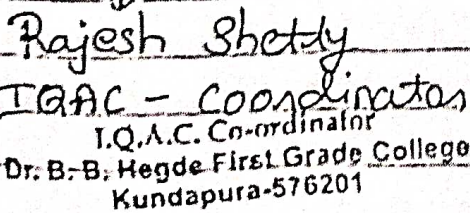 Rajesh Shetty
IQAC - Coordinator
I.Q.A.C. Co-ordinator
Dr. B.B. Hegde First Grade College
Kundapura-576201